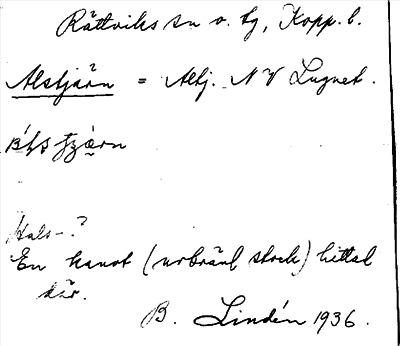 Rättviks sn o. tg, Kopp. l.
Alstjärn = Altj. NV Lugnet.
Hals-?
En kanot (urbränd stock) hittad
där.
B. Lindén 1936.